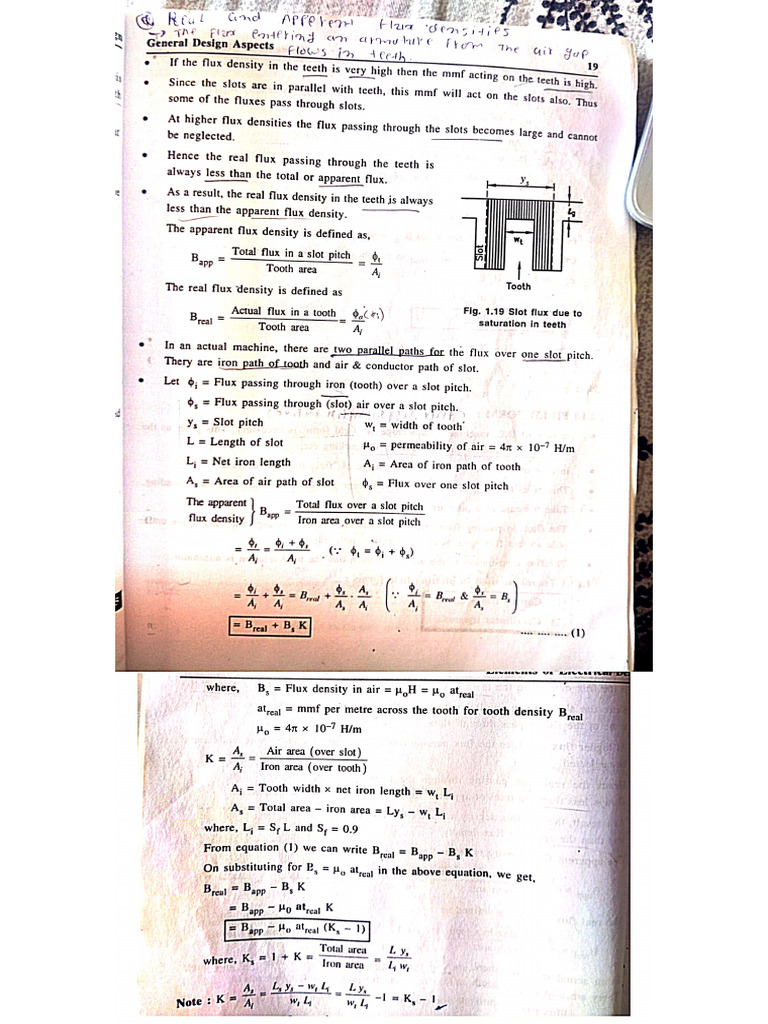 Real and Apparent flux densities
→ The flux entering an armature from the air gap
flows in teeth.
General Design Aspects
19
• If the flux density in the teeth is very high then the mmf acting on the teeth is high.
• Since the slots are in parallel with teeth, this mmf will act on the slots also. Thus
some of the fluxes pass through slots.
• At higher flux densities the flux passing through the slots becomes large and cannot
be neglected.
• Hence the real flux passing through the teeth is
always less than the total or apparent flux.
• As a result, the real flux density in the teeth is always
less than the apparent flux density.
The apparent flux density is defined as,
B_app = Total flux in a slot pitch / Tooth area = ϕ_t / A_i
The real flux density is defined as
B_real = Actual flux in a tooth / Tooth area = ϕ_a / A_i
y_s
L_s
w_t
Slot
Tooth
Fig. 1.19 Slot flux due to
saturation in teeth
• In an actual machine, there are two parallel paths for the flux over one slot pitch.
Thery are iron path of tooth and air & conductor path of slot.
• Let ϕ_i = Flux passing through iron (tooth) over a slot pitch.
ϕ_s = Flux passing through (slot) air over a slot pitch.
y_s = Slot pitch w_t = width of tooth
L = Length of slot μ_o = permeability of air = 4π × 10⁻⁷ H/m
L_i = Net iron length A_i = Area of iron path of tooth
A_s = Area of air path of slot ϕ_s = Flux over one slot pitch
The apparent flux density } B_app = Total flux over a slot pitch / Iron area over a slot pitch
= ϕ_t / A_i = (ϕ_i + ϕ_s) / A_i (∵ ϕ_t = ϕ_i + ϕ_s)
= ϕ_i / A_i + ϕ_s / A_i = B_real + ϕ_s / A_s · A_s / A_i (∵ ϕ_i / A_i = B_real & ϕ_s / A_s = B_s)
= B_real + B_s K ... ... ... (1)
where, B_s = Flux density in air = μ_o H = μ_o at_real
at_real = mmf per metre across the tooth for tooth density B_real
μ_o = 4π × 10⁻⁷ H/m
K = A_s / A_i = Air area (over slot) / Iron area (over tooth)
A_i = Tooth width × net iron length = w_t L_i
A_s = Total area − iron area = Ly_s − w_t L_i
where, L_i = S_f L and S_f = 0.9
From equation (1) we can write B_real = B_app − B_s K
On substituting for B_s = μ_o at_real in the above equation, we get,
B_real = B_app − B_s K
= B_app − μ_0 at_real K
= B_app − μ_o at_real (K_s − 1)
where, K_s = 1 + K = Total area / Iron area = L y_s / L_i w_t
Note : K = A_s / A_i = (L_s y_s − w_t L_i) / w_t L_i = L y_s / w_t L_i − 1 = K_s − 1